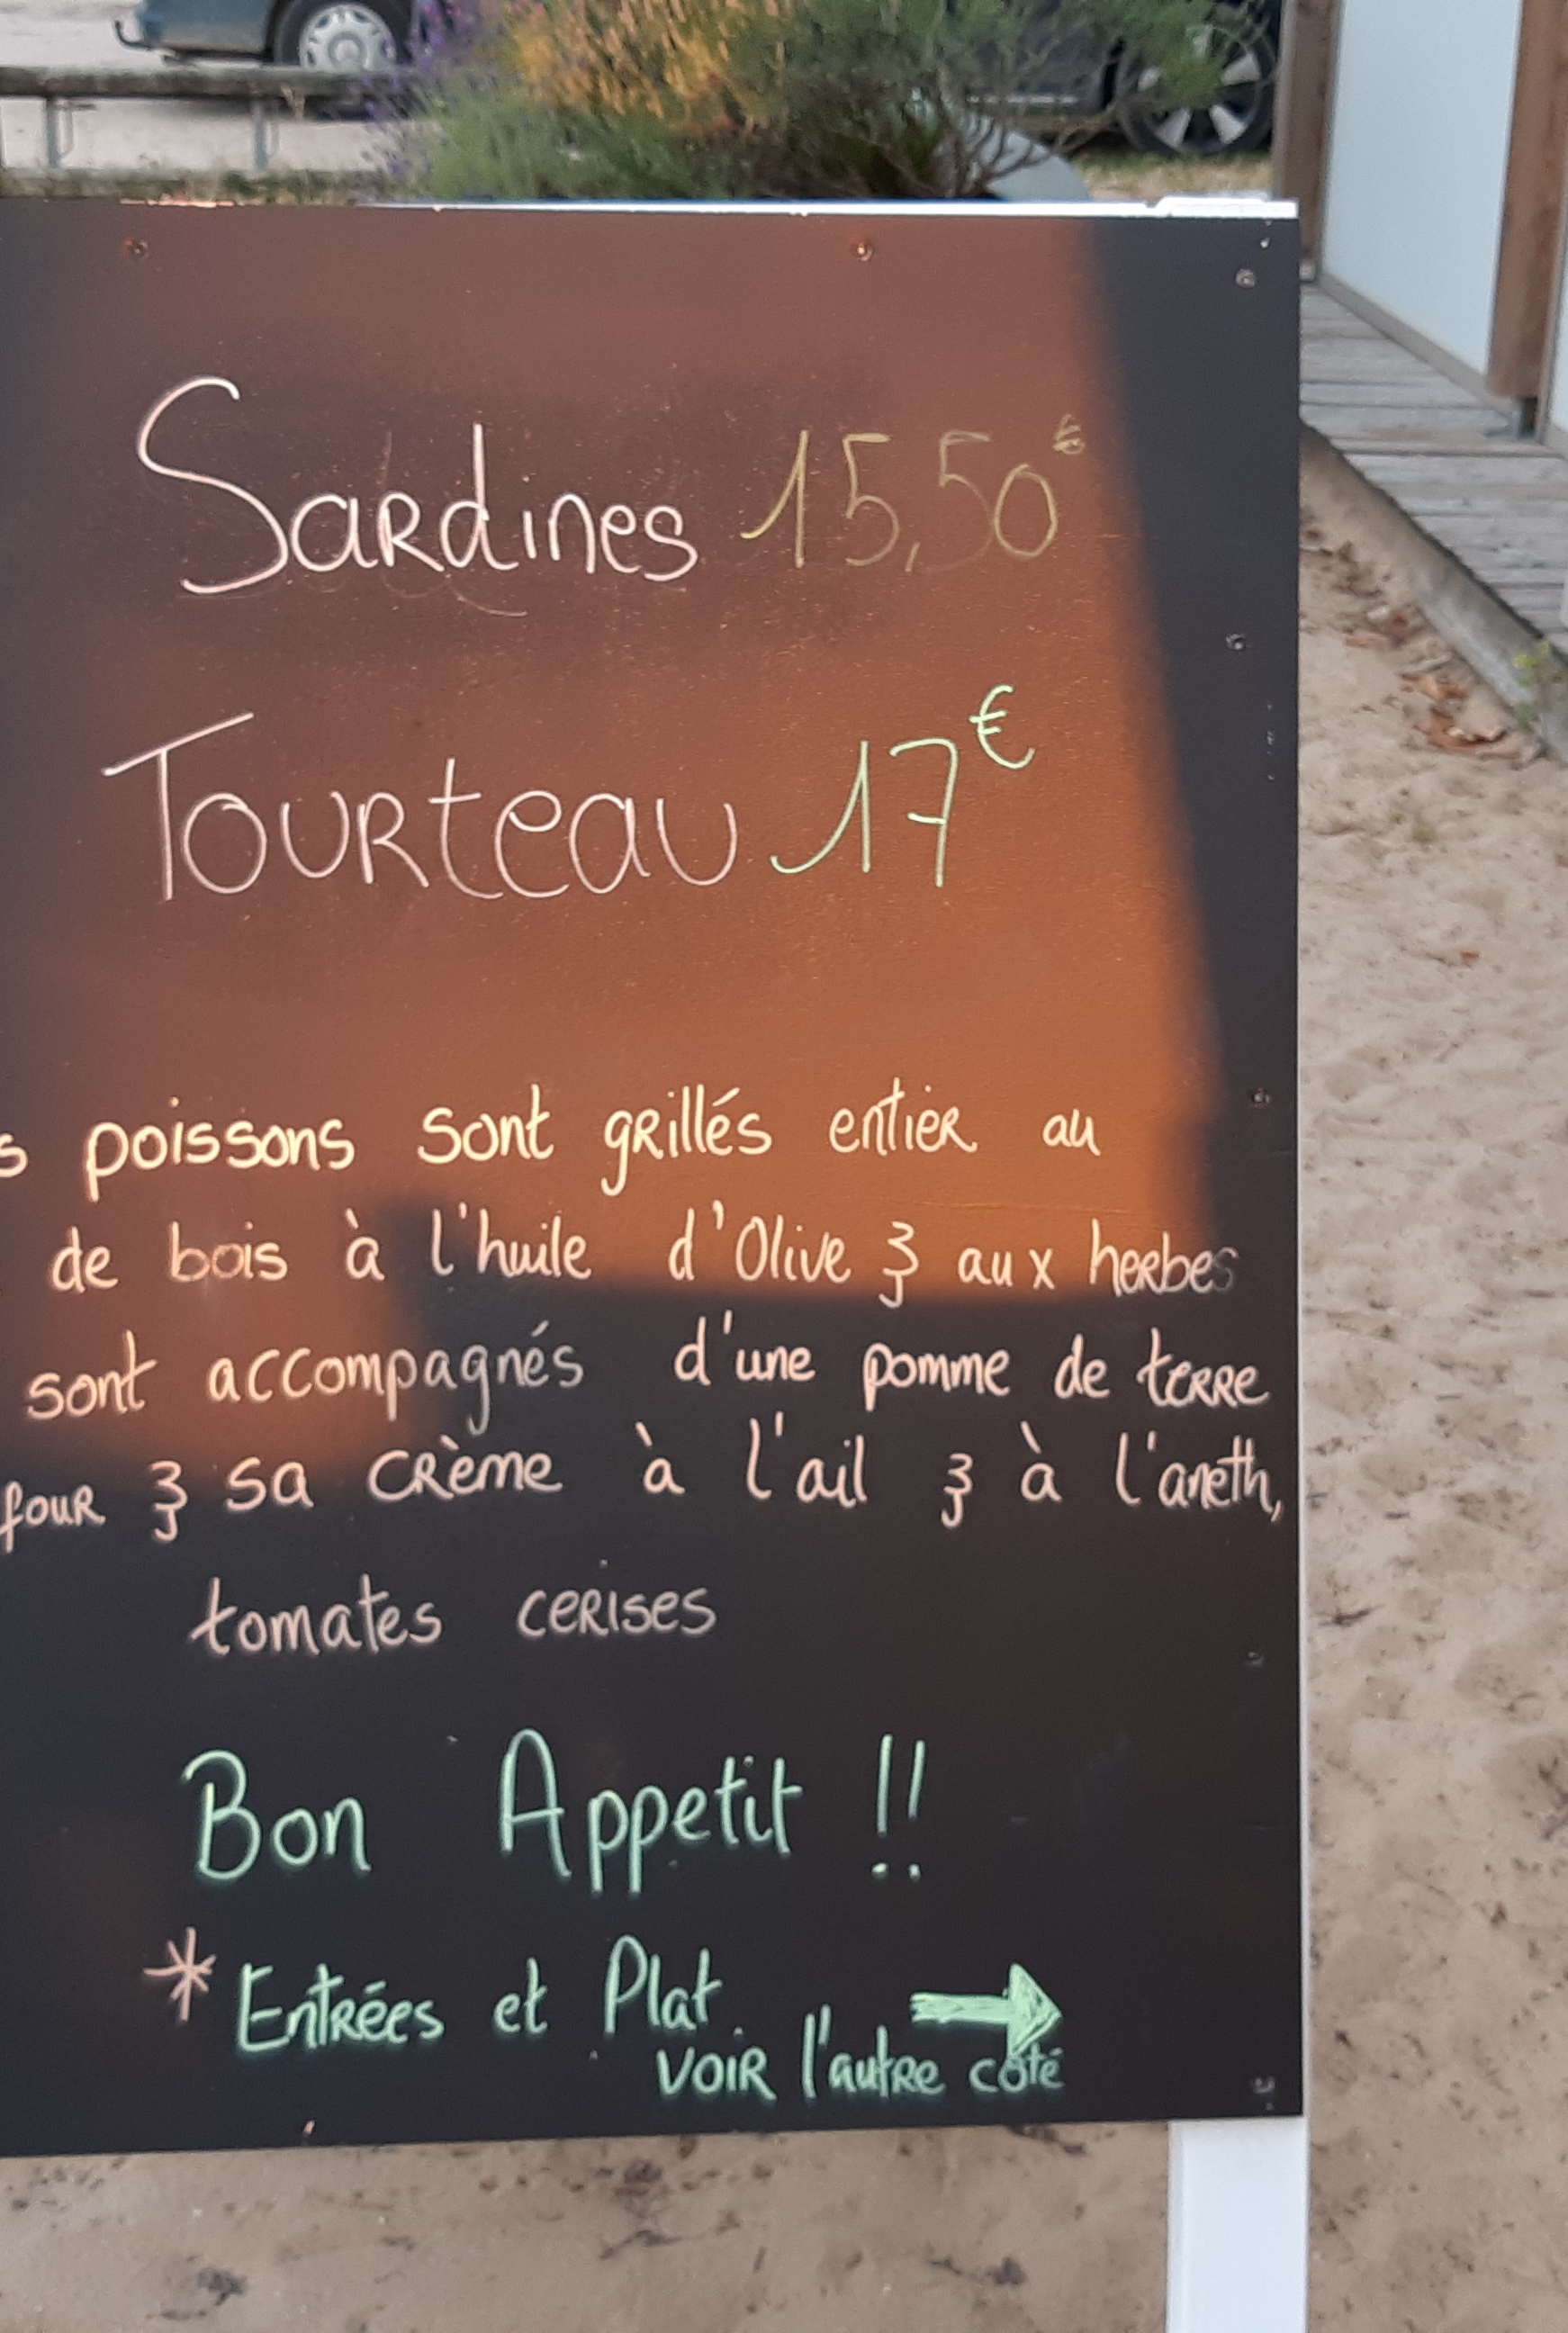 Sardines 15,50€
Tourteau 17€
s poissons sont grillés entier au
de bois à l'huile d'Olive & aux herbes
sont accompagnés d'une pomme de terre
four & sa crème à l'ail & à l'aneth,
tomates cerises
Bon Appetit !!
* Entrées et Plat
voir l'autre côté